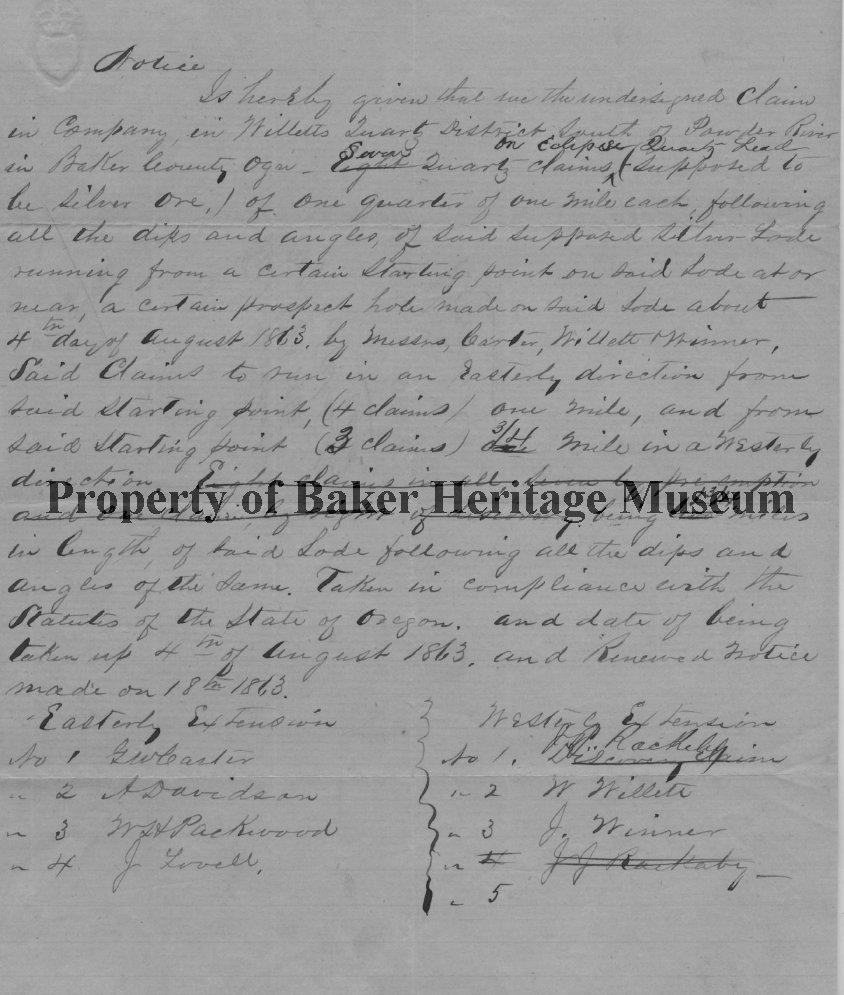 Notice
Is hereby given that we the undersigned Claim
in Company, in Willetts Quartz District South of Powder River
on Eclipse Quartz Lead
in Baker County Ogn - Eight Seven Quartz Claims, (supposed to
be Silver Ore,) of one quarter of one mile each, following
all the dips and angles, of said supposed Silver Lode
running from a certain starting point on said Lode at or
near, a certain prospect hole made on said Lode about
4th day of August 1863. by Messrs, Carter, Willett & Winner,
Said Claims to run in an Easterly direction from
said starting point, (4 claims) one mile, and from
said starting point (3 claims) 3/4 mile in a Westerly
direction. Eight claims in all, Seven by preemption
and one claim, by right of discovery, being miles
in length, of said Lode following all the dips and
angles of the same. Taken in compliance with the
Statutes of the State of Oregon. and date of being
taken up 4th of August 1863. and Renewed Notice
made on 18th 1863.
Easterly Extension
No 1 GW Carter
" 2 A Davidson
" 3 W H Packwood
" 4 J Lovell.
Westerly Extension
No 1. Discovery Claim
" 2 W Willett
" 3 J. Winner
" 4 J J Rackaby
" 5
Property of Baker Heritage Museum